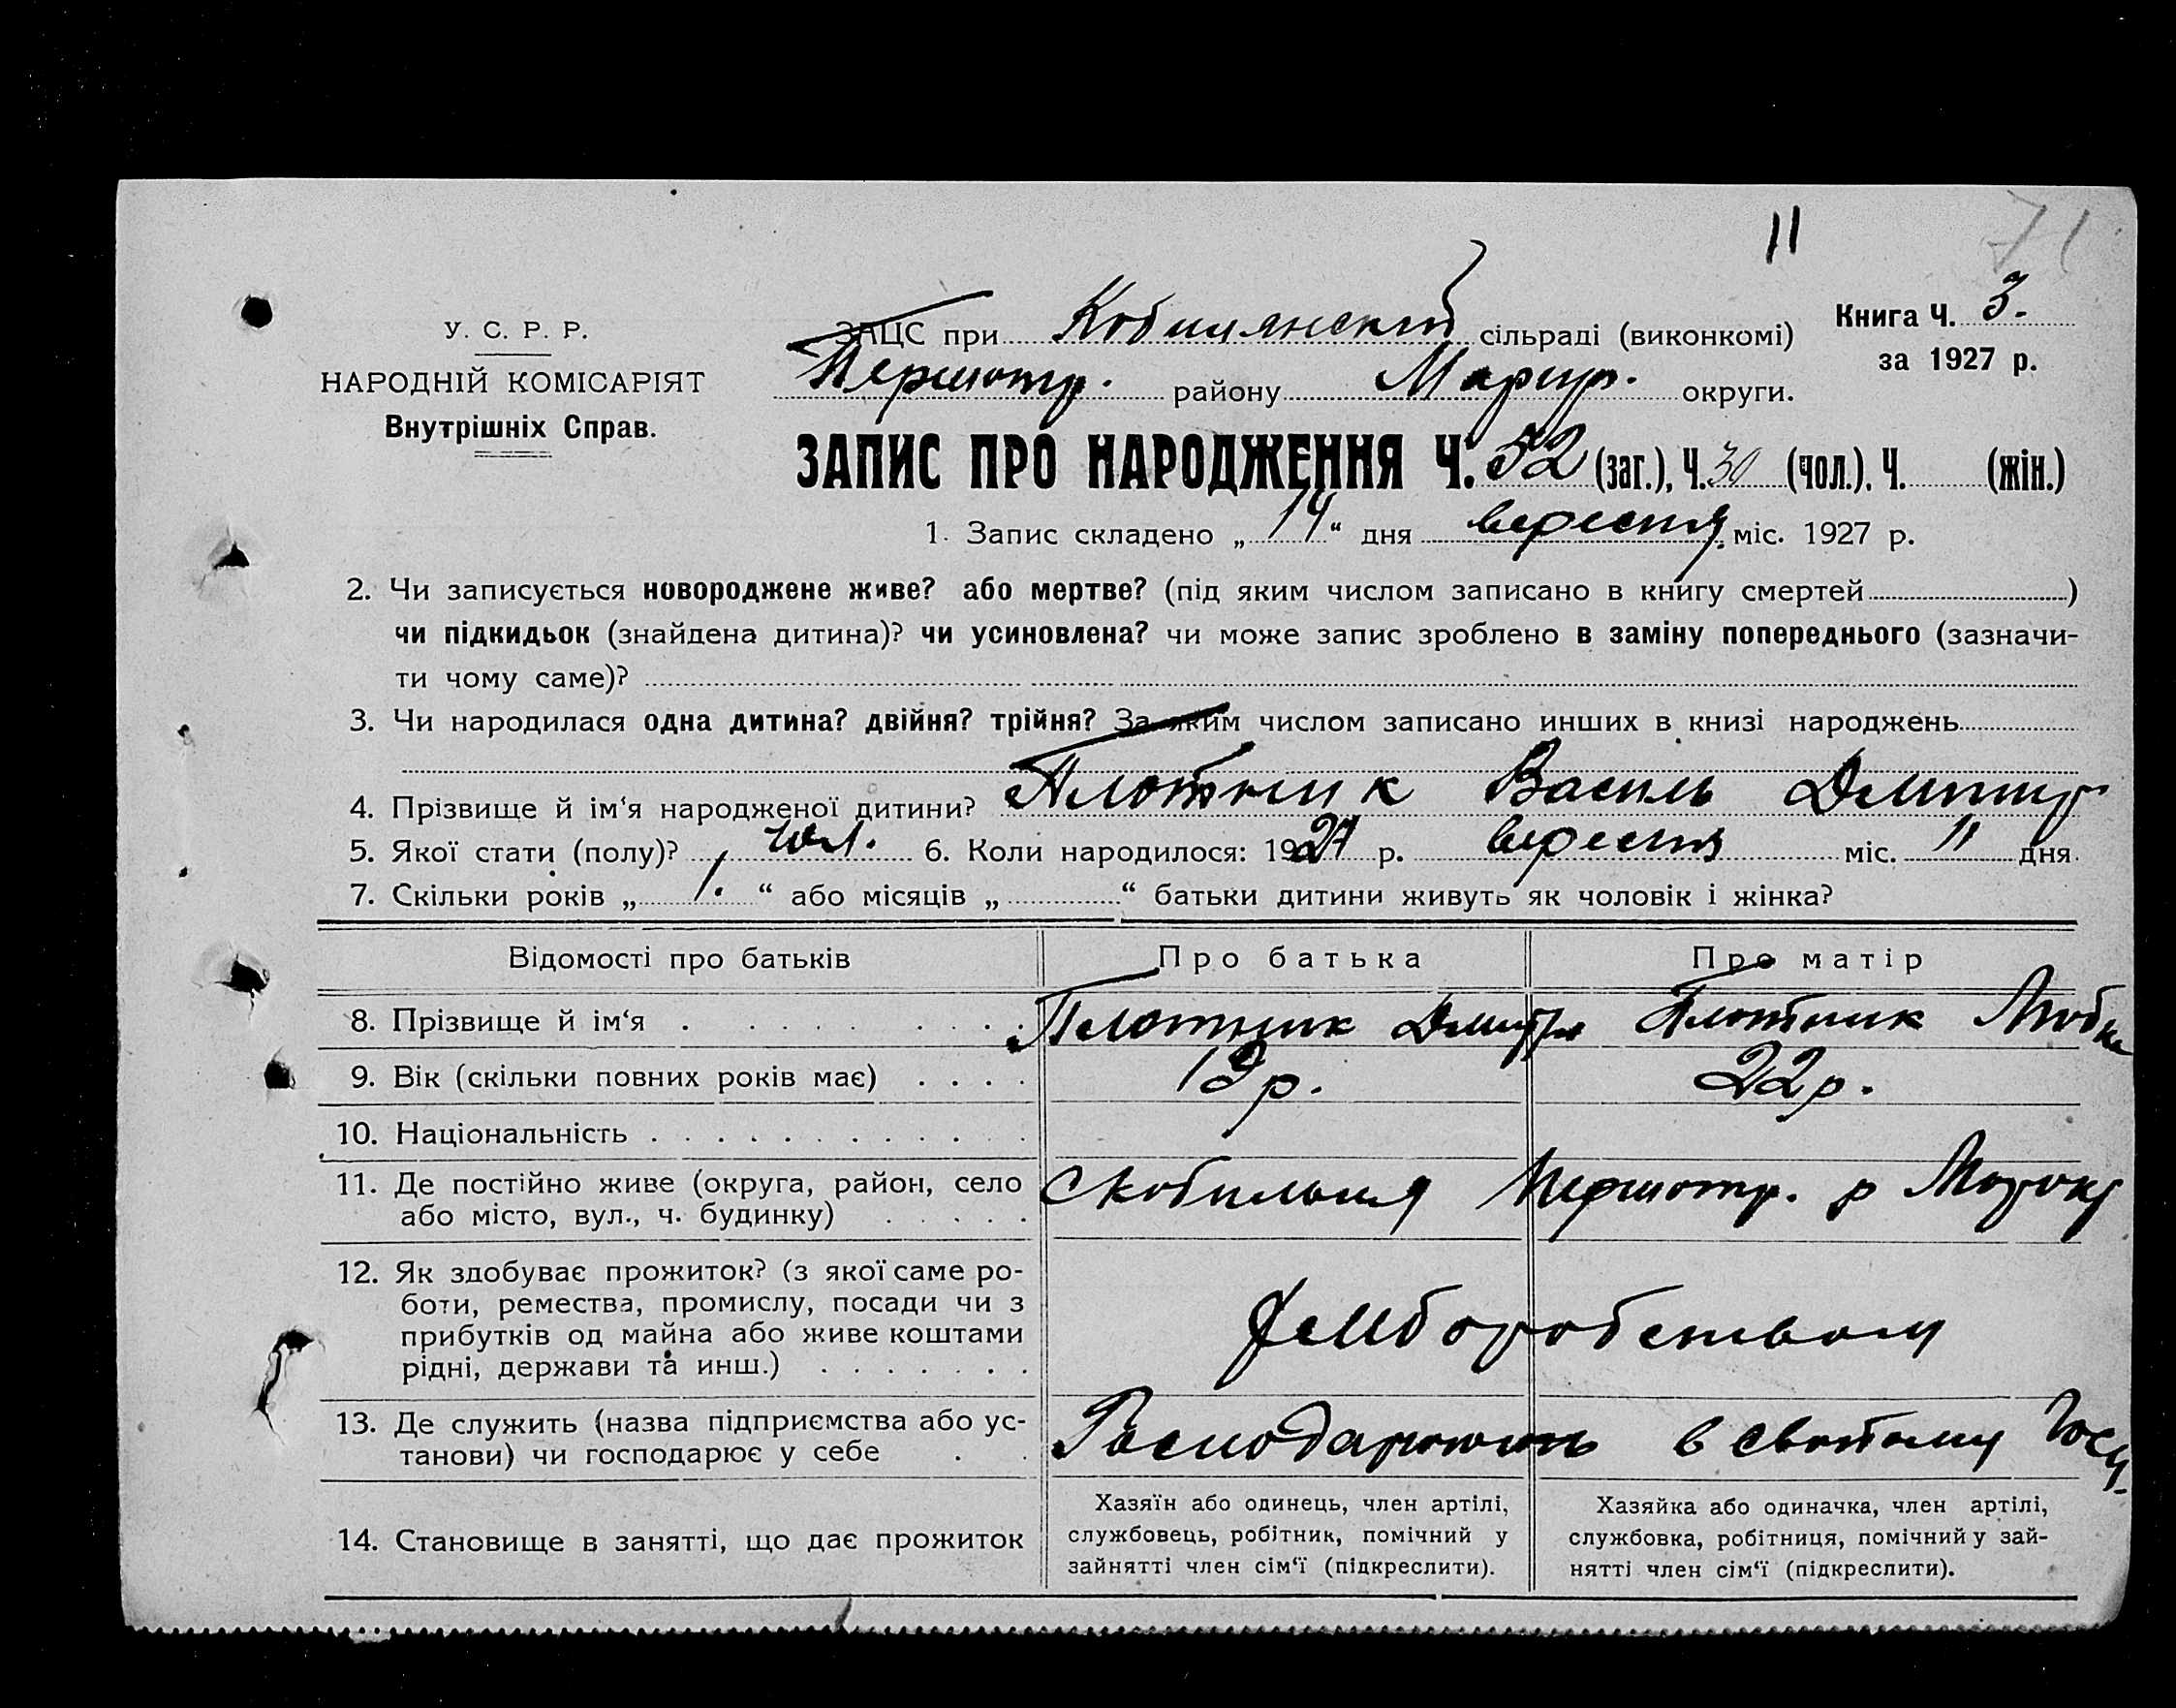 11 71
У. С. Р. Р.
НАРОДНІЙ КОМІСАРІЯТ
Внутрішніх Справ.
ЗАЦС при Кобилянскій сільраді (виконкомі)
Першотр. району Маріуп. округи.
Книга Ч. 3.
за 1927 р.
ЗАПИС ПРО НАРОДЖЕННЯ Ч. 52 (заг.), Ч. 30 (чол.). Ч. (жін.)
1. Запис складено „ 14 “ дня вересня міс. 1927 р.
2. Чи записується новороджене живе? або мертве? (під яким числом записано в книгу смертей )
чи підкидьок (знайдена дитина)? чи усиновлена? чи може запис зроблено в заміну попереднього (зазначи-
ти чому саме)?
3. Чи народилася одна дитина? двійня? трійня? За яким числом записано инших в книзі народжень
4. Прізвище й ім‘я народженої дитини? Плотник Василь Дмитр
5. Якої стати (полу)? чол. 6. Коли народилося: 1927 р. вересня міс. 11 дня.
7. Скільки років „ 1. “ або місяців „ “ батьки дитини живуть як чоловік і жінка?
Відомості про батьків Про батька Про матір
8. Прізвище й ім‘я Плотник Дмитро Плотник Любов
9. Вік (скільки повних років має) 19 р. 22 р.
10. Національність
11. Де постійно живе (округа, район, село
або місто, вул., ч. будинку)
с Кобильня Першотр. р Мар окр
12. Як здобуває прожиток? (з якої саме ро-
боти, ремества, промислу, посади чи з
прибутків од майна або живе коштами
рідні, держави та инш.)
хемборобством
13. Де служить (назва підприємства або ус-
танови) чи господарює у себе
Господарюють в свойому госп.
14. Становище в занятті, що дає прожиток
Хазяїн або одинець, член артілі,
службовець, робітник, помічний у
зайнятті член сім‘ї (підкреслити).
Хазяйка або одиначка, член артілі,
службовка, робітниця, помічний у зай-
нятті член сім‘ї (підкреслити).